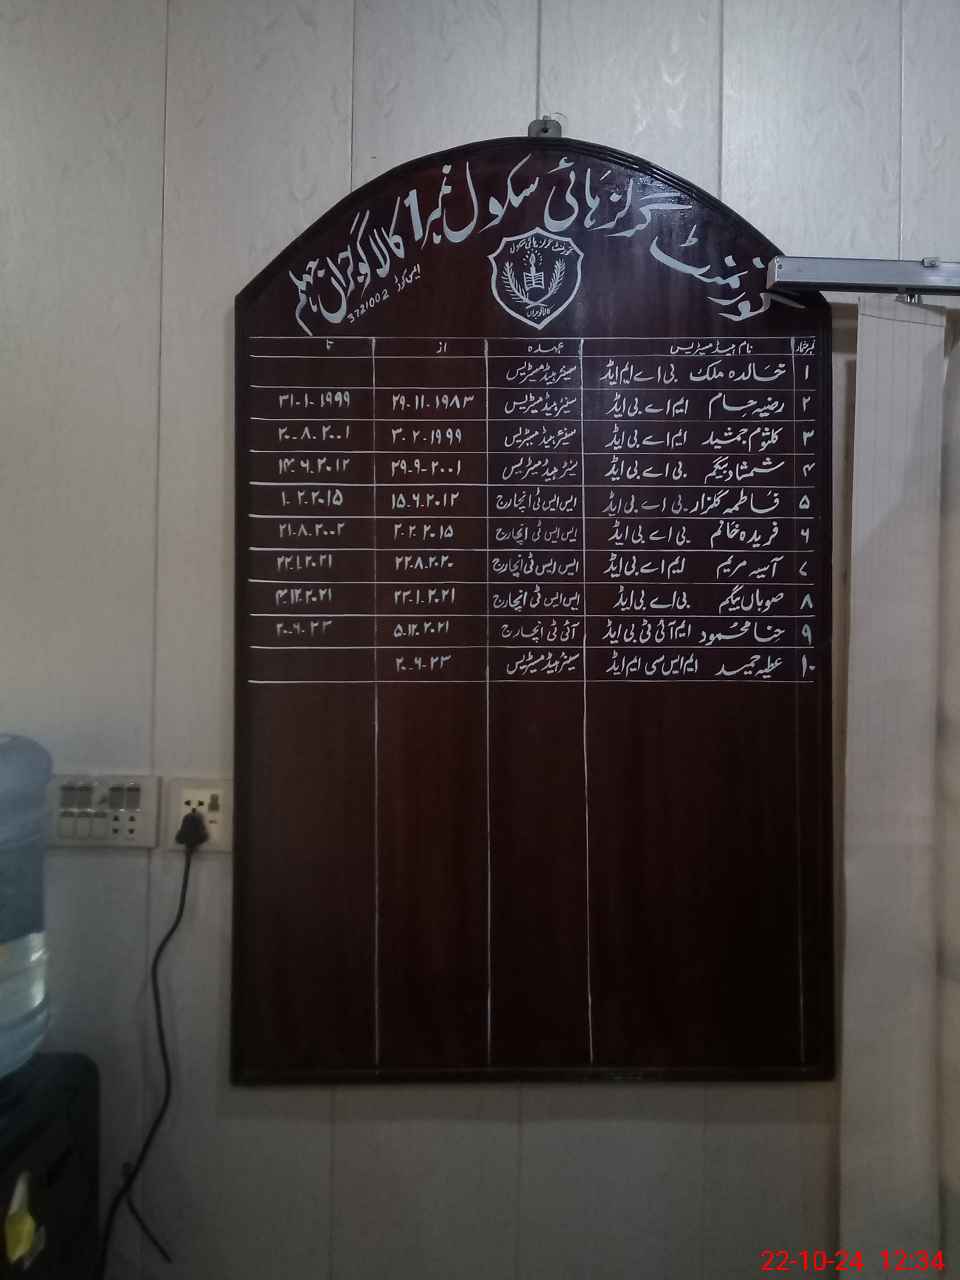 گورنمنٹ گرلز ہائی سکول نمبر 1 کالا گوجراں جہلم
ایمی کوڈ 3721002
گورنمنٹ گرلز ہائی سکول
کالا گوجراں
نمبر شمار نام ہیڈ مسٹریس عہدہ از تا
۱ خالدہ ملک بی اے ایم ایڈ سینئر ہیڈ مسٹریس
۲ رضیہ حسام ایم اے بی ایڈ سینئر ہیڈ مسٹریس ۲۹-۱۱-۱۹۸۳ ۳۱-۱-۱۹۹۹
۳ کلثوم جمشید ایم اے بی ایڈ سینئر ہیڈ مسٹریس ۳-۲-۱۹۹۹ ۲۰-۸-۲۰۰۱
۴ شمشاد بیگم بی اے بی ایڈ سینئر ہیڈ مسٹریس ۲۹-۹-۲۰۰۱ ۱۴-۶-۲۰۱۲
۵ فاطمہ گلزار بی اے بی ایڈ ایس ایس ٹی انچارج ۱۵-۶-۲۰۱۲ ۱-۲-۲۰۱۵
۶ فریدہ خانم بی اے بی ایڈ ایس ایس ٹی انچارج ۲-۲-۲۰۱۵
۷ آسیہ مریم ایم اے بی ایڈ ایس ایس ٹی انچارج ۲۲-۸-۲۰۲۰ ۲۲-۱-۲۰۲۱
۸ صوباں بیگم بی اے بی ایڈ ایس ایس ٹی انچارج ۲۲-۱-۲۰۲۱ ۴-۱۲-۲۰۲۱
۹ حنا محمود ایم آئی ٹی بی ایڈ آئی ٹی انچارج ۵-۱۲-۲۰۲۱ ۲۰-۶-۲۳
۱۰ عطیہ حمید ایم ایس سی ایم ایڈ سینئر ہیڈ مسٹریس ۲۰-۶-۲۳
22-10-24 12:34